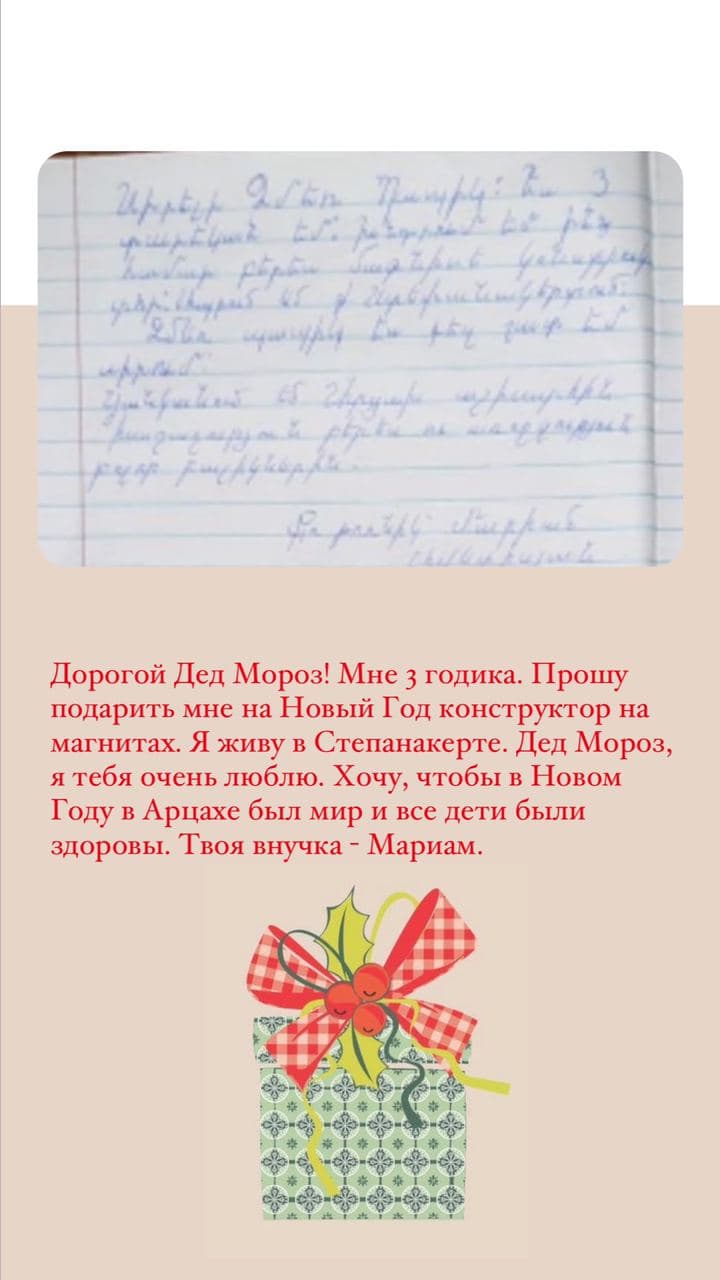 Սիրելի Ձմեռ Պապիկ: Ես 3
տարեկան եմ: խնդրում եմ ինձ
համար բերես մագնիսե
ապրում եմ ք Ստեփանակերտում:
Ձմեռ պապիկ ես քեզ շատ եմ
սիրում:
Ցանկանում եմ
խաղաղություն բերես ու առողջություն
բոլոր բալիկներին.
Քո թոռնիկ՝ Մարիամ
Дорогой Дед Мороз! Мне 3 годика. Прошу
подарить мне на Новый Год конструктор на
магнитах. Я живу в Степанакерте. Дед Мороз,
я тебя очень люблю. Хочу, чтобы в Новом
Году в Арцахе был мир и все дети были
здоровы. Твоя внучка - Мариам.